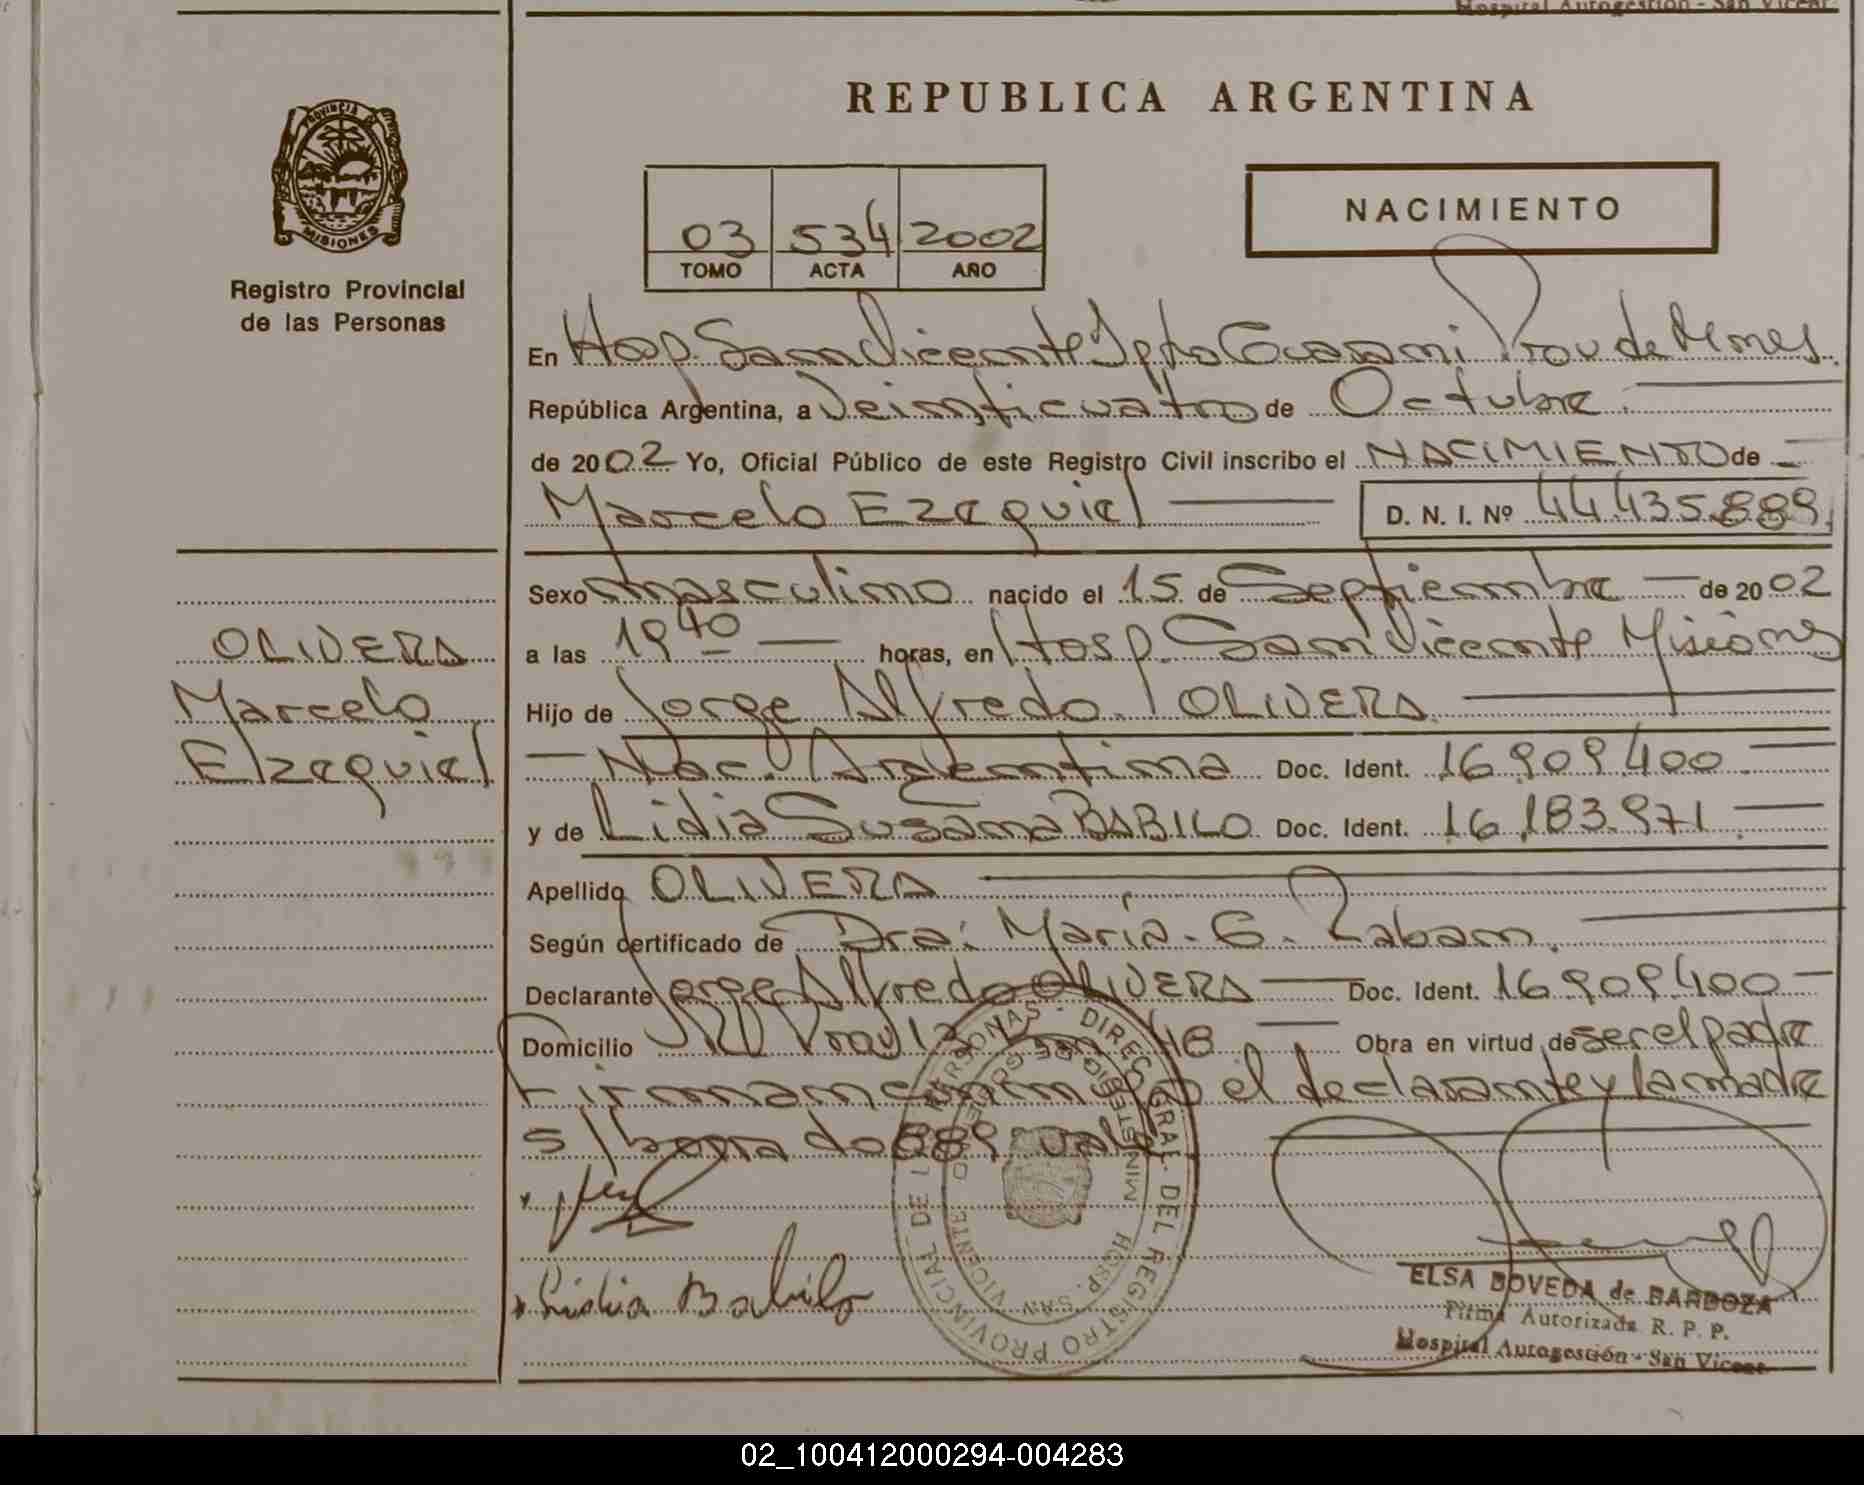 Hospital Autogestión - San Vicent.
REPUBLICA ARGENTINA
PROVINCIA DE MISIONES
Registro Provincial
de las Personas
03 534 2002
TOMO ACTA AÑO
NACIMIENTO
En Hosp. San Vicente Dpto Guaraní Prov de Mnes.
República Argentina, a Veinticuatro de Octubre
de 2002 Yo, Oficial Público de este Registro Civil inscribo el NACIMIENTO de
Marcelo Ezequiel D. N. I. Nº 44.435.889
Sexo masculino nacido el 15 de Septiembre de 2002
a las 19 40 horas, en Hosp. San Vicente Misiones
Hijo de Jorge Alfredo OLIVERA
Nac. Argentina Doc. Ident. 16.909.400
y de Lidia Susana BABILO Doc. Ident. 16.183.971
Apellido OLIVERA
Según certificado de Dra. María. G. Zaban.
Declarante Jorge Alfredo OLIVERA Doc. Ident. 16.909.400
Domicilio Prov 13 Km 48 Obra en virtud de ser el padre
Firman el declarante y la madre
s/borrado 889 vale
OLIVERA
Marcelo
Ezequiel
Lidia Babilo
DIREC. GRAL. DEL REGISTRO PROVINCIAL DE LAS PERSONAS
HOSP. SAN VICENTE
ELSA BOVEDA de BARBOZA
Firma Autorizada R. P. P.
Hospital Autogestión - San Vicent.
02_100412000294-004283